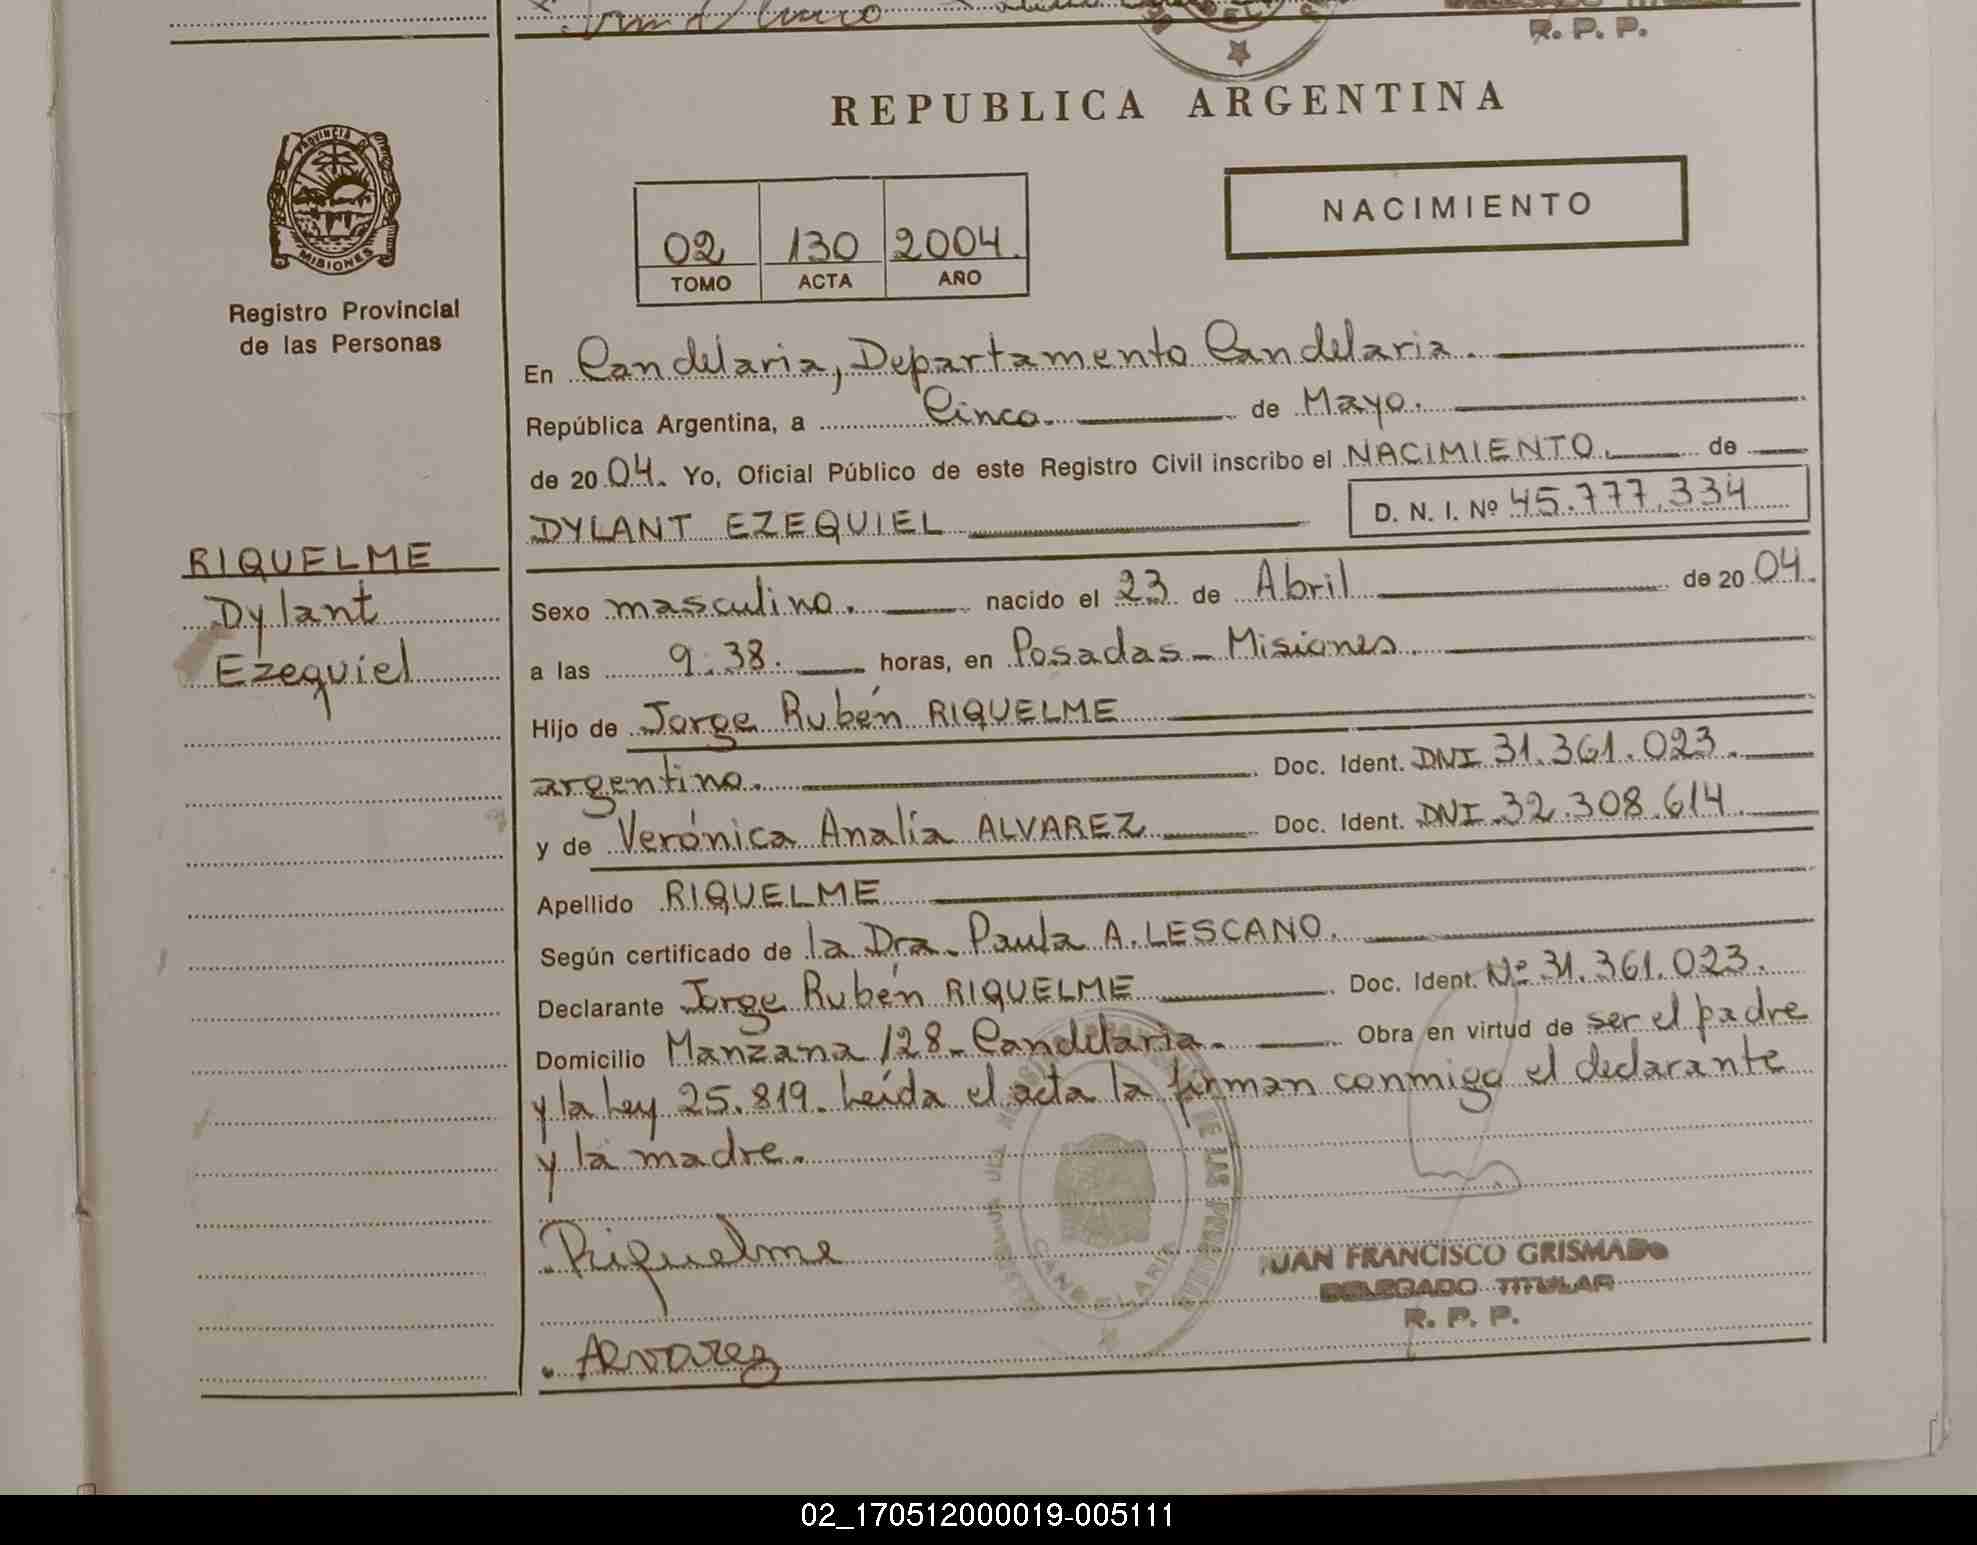 R. P. P.
REPUBLICA ARGENTINA
PROVINCIA DE
MISIONES
Registro Provincial
de las Personas
NACIMIENTO
02 130 2004.
TOMO ACTA AÑO
En Candelaria, Departamento Candelaria.
República Argentina, a Cinco. de Mayo.
de 2004. Yo, Oficial Público de este Registro Civil inscribo el NACIMIENTO. de
DYLANT EZEQUIEL D. N. I. Nº 45.777.334
RIQUELME
Dylant
Ezequiel
Sexo masculino. nacido el 23 de Abril de 2004.
a las 9:38. horas, en Posadas - Misiones.
Hijo de Jorge Rubén RIQUELME
argentino. Doc. Ident. DNI 31.361.023.
y de Verónica Analía ALVAREZ Doc. Ident. DNI 32.308.614.
Apellido RIQUELME
Según certificado de la Dra. Paula A. LESCANO.
Declarante Jorge Rubén RIQUELME Doc. Ident. Nº 31.361.023.
Domicilio Manzana 128 - Candelaria. Obra en virtud de ser el padre
y la Ley 25.819. Leída el acta la firman conmigo el declarante
y la madre.
Riquelme
CANDELARIA
JUAN FRANCISCO GRISMADO
DELEGADO TITULAR
R. P. P.
Alvarez
02_170512000019-005111